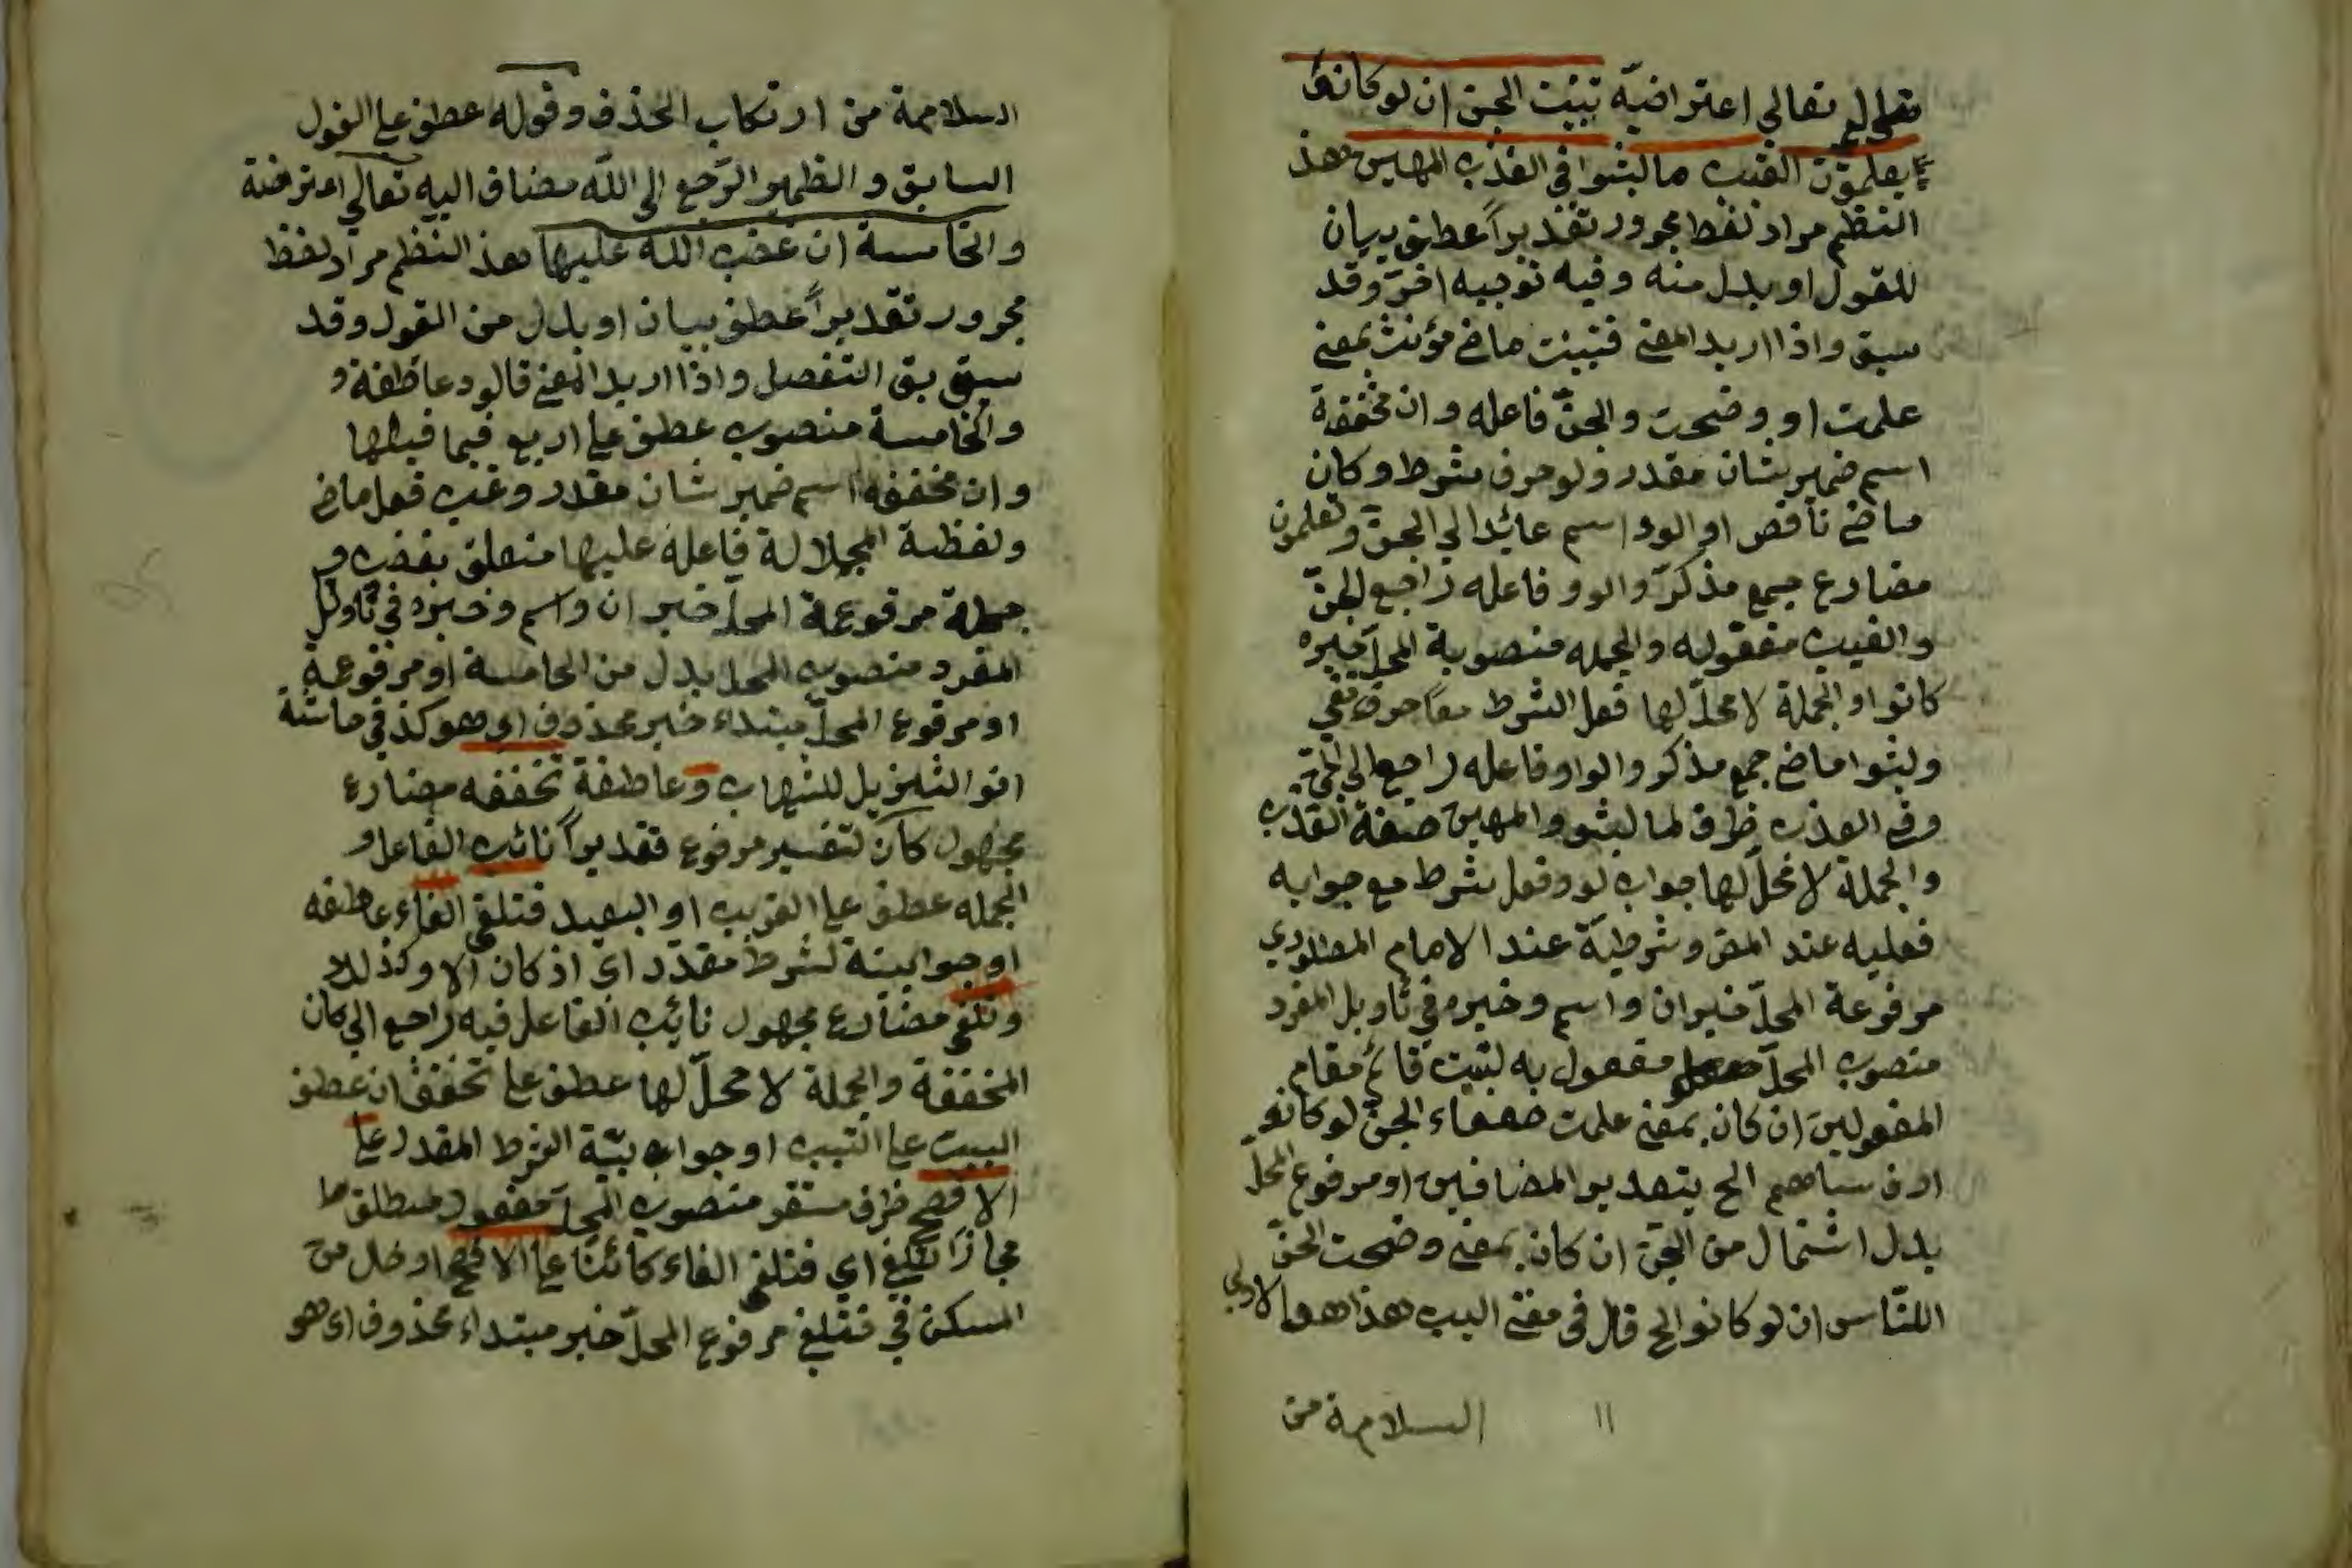 تعالى تعالي اعتراضيّة تبيّنت الجن ان لو كانوا
يعلمون الغيب ما لبثوا في العذب المهين هذ
النظم مراد لفظ مجرور تقديراً عطف بيان
للقول او بدل منه وفيه توجيه اخر وقد
سبق واذا اريد المعنى فتبينت ماض مؤنث بمعنى
علمت او وضحت والجنّ فاعله وان مخففة
اسم ضمير شان مقدر ولو حرف شرط وكان
ماض ناقص او الوو اسم عائد الي الجنّ وتعلمون
مضارع جمع مذكرّ والوو فاعله راجع لجنّ
والغيب مفعوله والجمله منصوبة المحلّ خبره
كانوا والجملة لا محلّ لها فعل الشرط مما حرف نفي
ولبثوا ماض جمع مذكر والواو فاعله راجع الي الجنّ
وفي العذب ظرف لما لبثو والمهين صفة العذب
والجملة لا محلّ لها جواب لو وفعل شرط مع جوابه
فعليه عند المص وشرطيّة عند الامام
مرفوعة المحلّ خبر ان واسم وخبره في تأويل المفرد
منصوب المحلّ مفعول به لتبيت قائم مقام
المفعولين ان كان بمعنى علمت ضعفاء الجن لو كانو
الخ بتعدير المضافين او مرفوع المحلّ
بدل اشتمال من الجنّ ان كان بمعنى وضحت الجنّ
اللنّاس ان لو كانوا الخ قال في مغني البيب هذا هو الاولي
۱۱ السلامة من
السلامة من ارتكاب الحذف وقوله عطف على القول
السابق والظمير الرّجع الى اللّه مضاف اليه تعالي اعترضة
والخامسة ان غضب الله عليها هذ النظم مراد لفظ
مجرور تقديراً عطف بيان او بدل من القول وقد
سبق بق التفصل واذا اريد المعنى قالود عاطفة و
والخامسة منصوب عطف على اربع فيما قبلها
وان مخففه اسم ضمير شان مقدر وغب فعل ماض
ولفظة الجلالة فاعله عليها متعلق بغضب و
جملة مرفوعة المحلّ خبر ان واسم وخبزه في تاويل
المفرد منصوب المحل بدل من الخامسة او مرفوعة
او مرفوع المحلّ مبتداء خبر محذوف اي هو كذ في حاشية
انو التنزيل للشهاب وعاطفة تخففه مضارع
مجهول كان لتفسير مرفوع تقديراً نائب الفاعل و
الجمله عطف على القريب او البعيد فتلغى الفاء عاطفه
او جوابيتة لشرط مقدّر اي اذ كان الا وكذلك
وتلغى مضارع مجهول نائب الفاعل فيه راجع الي كان
المخففة والجملة لا محلّ لها عطف على تخفف ان عطف
البيت على التبب او جواب بيّة الشرط المقدر على
الافصح ظرف مستقر منصوب المحلّ مفعول مطلق ط
مجازا لتلغ اي فتلغى الفاء كائنا على الافصح او ضل من
المسكن في فتلغ مرفوع المحلّ خبر مبتداء محذوف اي هو